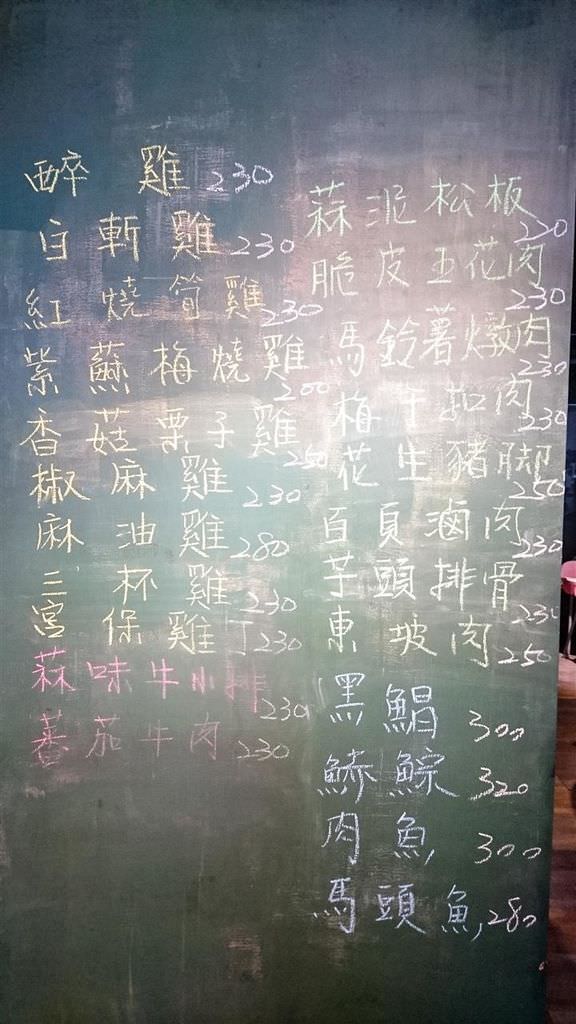 醉雞 230
白斬雞 230
紅燒筍雞 230
紫蘇梅燒雞 200
香菇栗子雞 250
椒麻雞 230
麻油雞 280
三杯雞 230
宮保雞丁 230
蒜味牛小排 230
蕃茄牛肉 230
蒜泥松板 220
脆皮五花肉 230
馬鈴薯燉肉 230
梅干扣肉 230
花生豬腳 250
百頁滷肉 230
芋頭排骨 230
東坡肉 250
黑鯧 300
鯵鯮 320
肉魚 300
馬頭魚 280